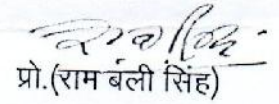 प्रो.(राम बली सिंह)